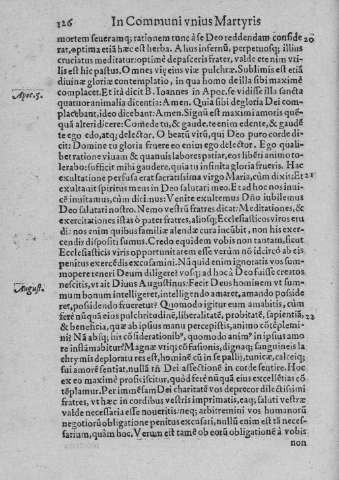 126 In Communi vnius Martyris
mortem seueramq; rationem tunc à se Deo reddendam conside 20
rat, optima etiã hæc est herba. Alius infernũ, perpetuosq; illius
cruciatus meditatur: optimè depasceris frater, valde etenim vti-
lis est hic pastus. Omnes viæ eius viæ pulchræ. Sublimis est etiã
diuinæ gloriæ contemplatio, in qua homo de illa sibi maximè
Apoc. 5.
complacet. Et ita dicit B. Ioannes in Apoc. se vidisse illa sancta
quatuor animalia dicentia: Amen. Quia sibi de gloria Dei com
placebant, ideo dicebant: Amen. Signũ est maximi amoris quẽ-
quã alteri dicere: Comede tu, & gaude. te enim edente, & gaudẽ
te ego edo, atq; delector. O beatũ virũ, qui Deo puro corde di-
cit: Domine tu gloria fruere eo enim ego delector. Ego quali-
bet ratione viuam & quauis labores patiar, eos libẽti animo to-
lerabo: sufficit mihi gaudere, quia tu infinita gloria frueris. Hac
exultatione perfusa erat sacratissima virgo Maria, cùm dixit: Et 21
exultauit spiritus meus in Deo salutari meo. Et ad hoc nos inui-
tẽ inuitamus, cùm dicimus: Venite exultemus Dño iubilemus
Deo salutari nostro. Nemo vestrũ fratres dicat: Meditationes, &
exercitationes istas ò pater fratres, aliosq; Ecclesiasticos viros eru
di: nos enim quibus familiæ alendæ cura incũbit, non his exer-
cendis dispositi sumus. Credo equidem vobis non tantam, sicut
Ecclesiasticis viris opportunitatem esse verùm nõ idcircò ab eis
penitus exercẽdis excusamini. Nũquid enim ignoratis vos sum-
mopere teneri Deum diligere? vosq; ad hoc à Deo fuisse creatos
August.
nescitis, vt ait Diuus Augustinus: Fecit Deus hominem vt sum-
mum bonum intelligeret, intelligendo amaret, amando posside
ret, possidendo frueretur? Quomodo igitur eum amabitis, cùm
ferè nũquã eius pulchritudinẽ, liberalitatẽ, probitatẽ, sapientiã, 22
& beneficia, quæ ab ipsius manu percepistis, animo cõtẽplemi-
ni? Nã absq; iis cõsiderationib', quomodo anim' in ipsius amo
re inflãmabitur? Magnæ virtutis cõfusionis, dignaq; sanguineis la
chrymis deploratu res est, hominẽ cũ in se passi), tunicæ, calceiq;
sui amorẽ sentiat, nullã rñ Dei affectionẽ in corde sentire. Hoc
ex eo maximè proficiscitur, quòd ferè nũquã eius excellẽtias cõ
tẽplamur. Per immẽsam Dei charitatẽ vos deprecor dilectissimi
fratres, vt hæc in cordibus vestris imprimatis, eaq; saluti vestræ
valde necessaria esse noueritis: neq; arbitremini vos humanorũ
negotiorũ obligatione penitus excusari, nullũ enim est tã neces-
sarium, quàm hoc. Verum est tamẽ ob eorũ obligationẽ à vobis
non